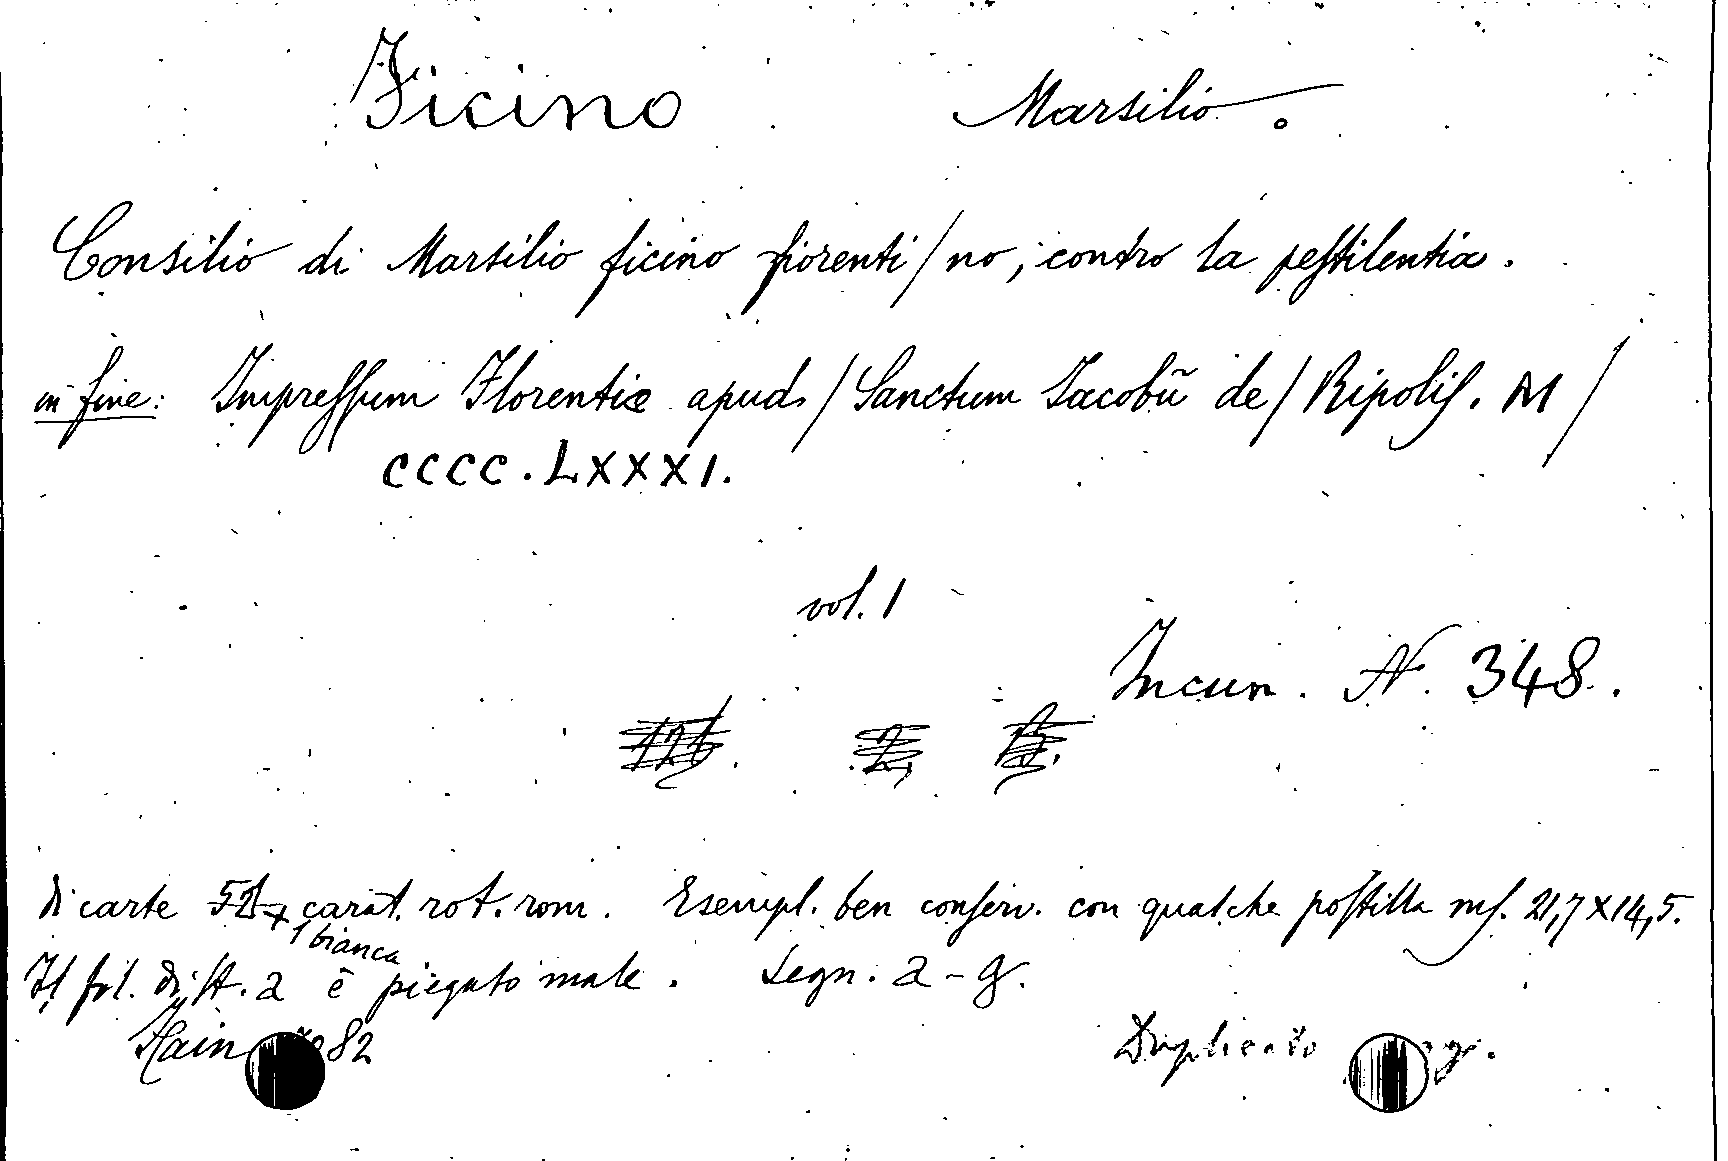 Ficino Marsilio.
Consilio di Marsilio ficino fiorenti/no, contro la peſtilentia.
in fine: Impreſſum Florentiæ apud/Sanctum Jacobū de/Ripoliſ. M/
CCCC.LXXXI.
vol. 1
Incun. N. 348.
di carte 52 + carat. rot. rom. Esempl. ben conſerv. con qualche poſtilla mſ. 21,7 X 14,5.
1 bianca
Il fol. è piegato male. Segn. a-g.
Hain 82
Duplicato